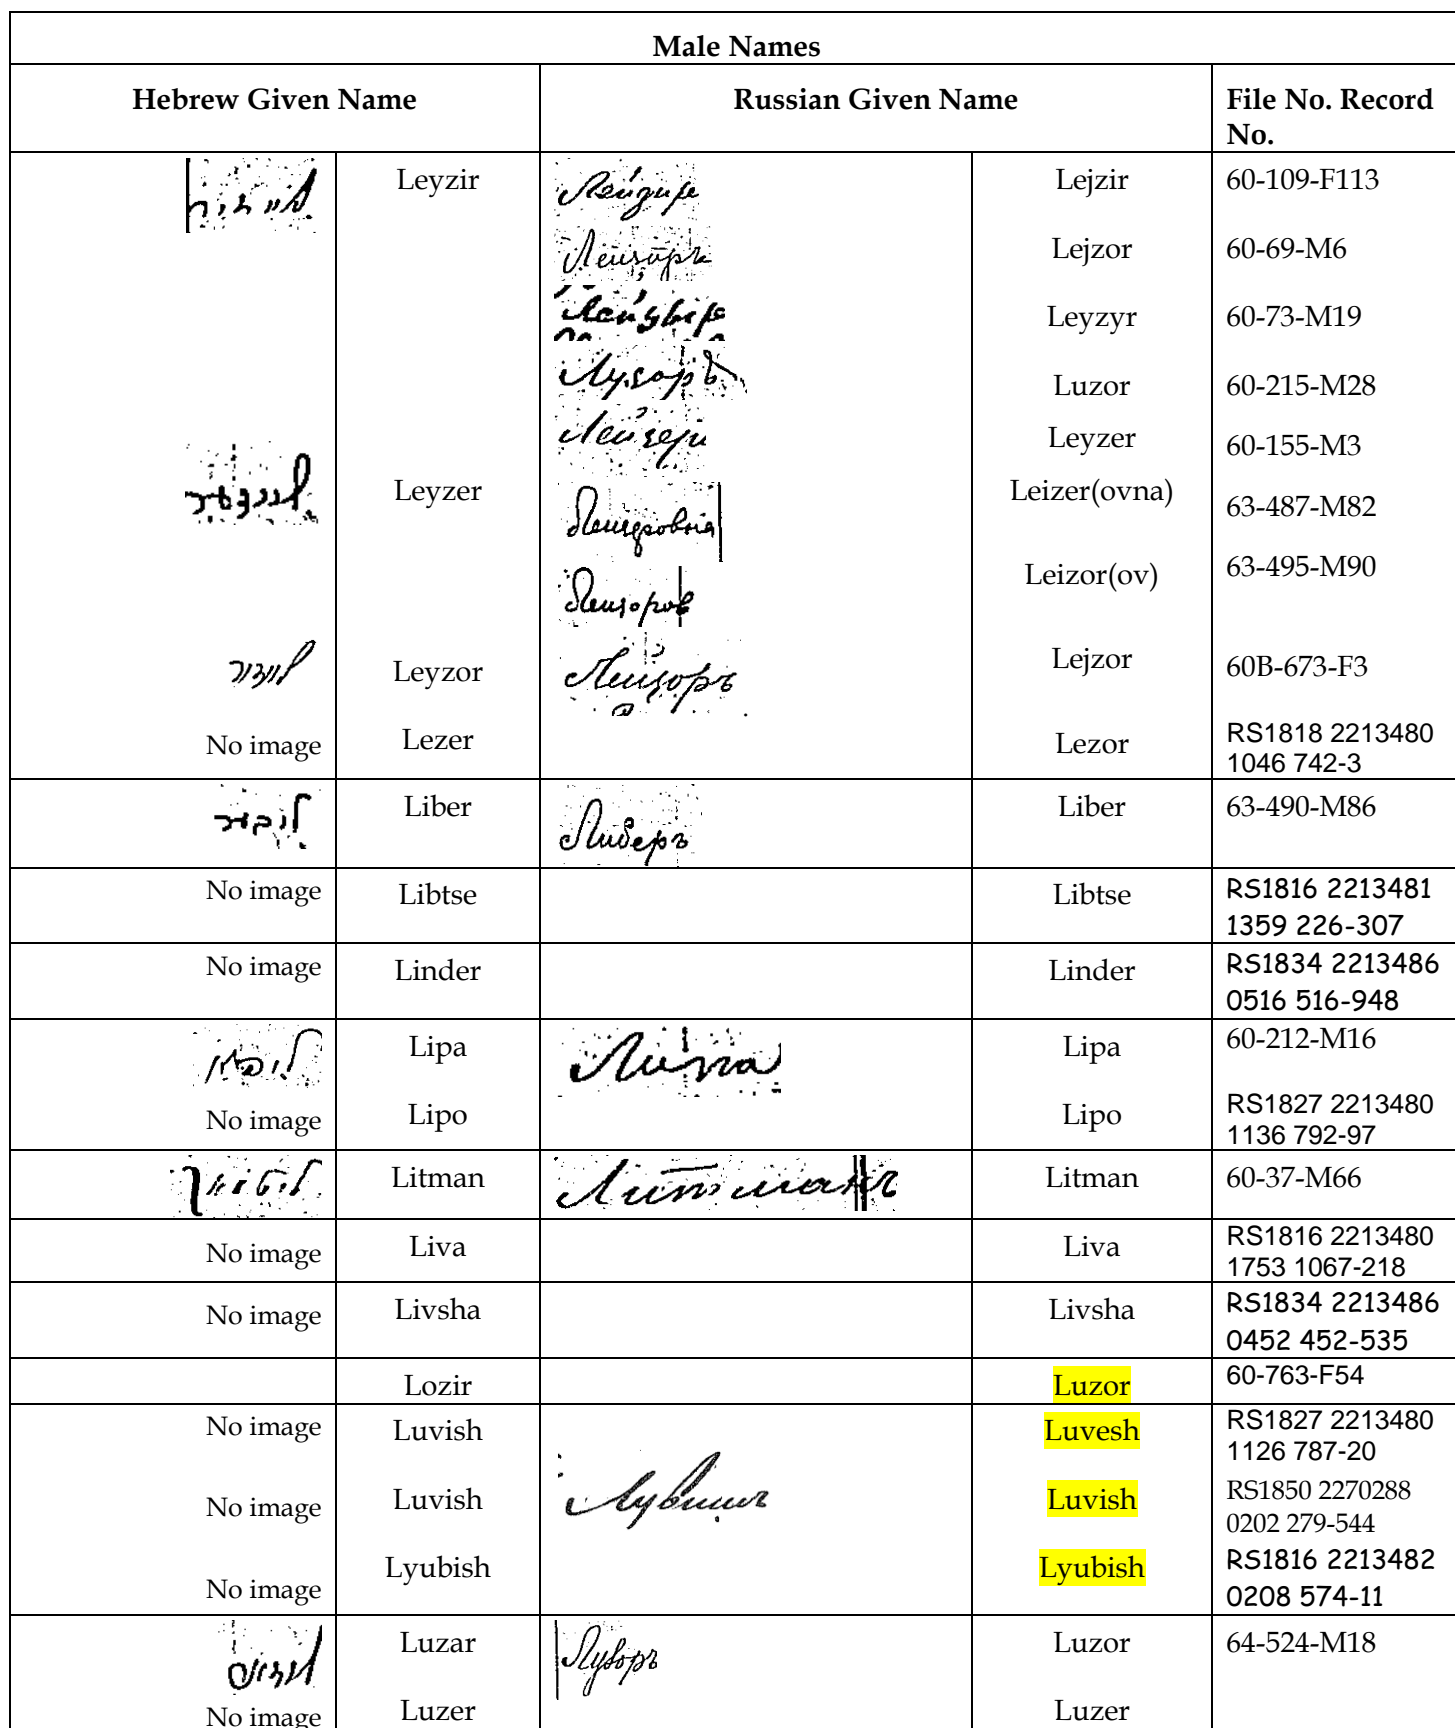 Male Names
Hebrew Given Name Russian Given Name File No. Record No.
Leyzir Лейзиръ Lejzir 60-109-F113
Лейзоръ Lejzor 60-69-M6
Лейзыръ Leyzyr 60-73-M19
Лузоръ Luzor 60-215-M28
Лейзеръ Leyzer 60-155-M3
לייזער Leyzer Лейзеровна Leizer(ovna) 63-487-M82
Лейзоров Leizor(ov) 63-495-M90
לייזור Leyzor Лейзоръ Lejzor 60B-673-F3
No image Lezer Lezor RS1818 2213480
1046 742-3
ליבער Liber Либеръ Liber 63-490-M86
No image Libtse Libtse RS1816 2213481
1359 226-307
No image Linder Linder RS1834 2213486
0516 516-948
ליפא Lipa Липа Lipa 60-212-M16
No image Lipo Lipo RS1827 2213480
1136 792-97
ליטמאן Litman Литманъ Litman 60-37-M66
No image Liva Liva RS1816 2213480
1753 1067-218
No image Livsha Livsha RS1834 2213486
0452 452-535
Lozir Luzor 60-763-F54
No image Luvish Luvesh RS1827 2213480
1126 787-20
No image Luvish Лувишъ Luvish RS1850 2270288
0202 279-544
No image Lyubish Lyubish RS1816 2213482
0208 574-11
Luzar Лузоръ Luzor 64-524-M18
No image Luzer Luzer